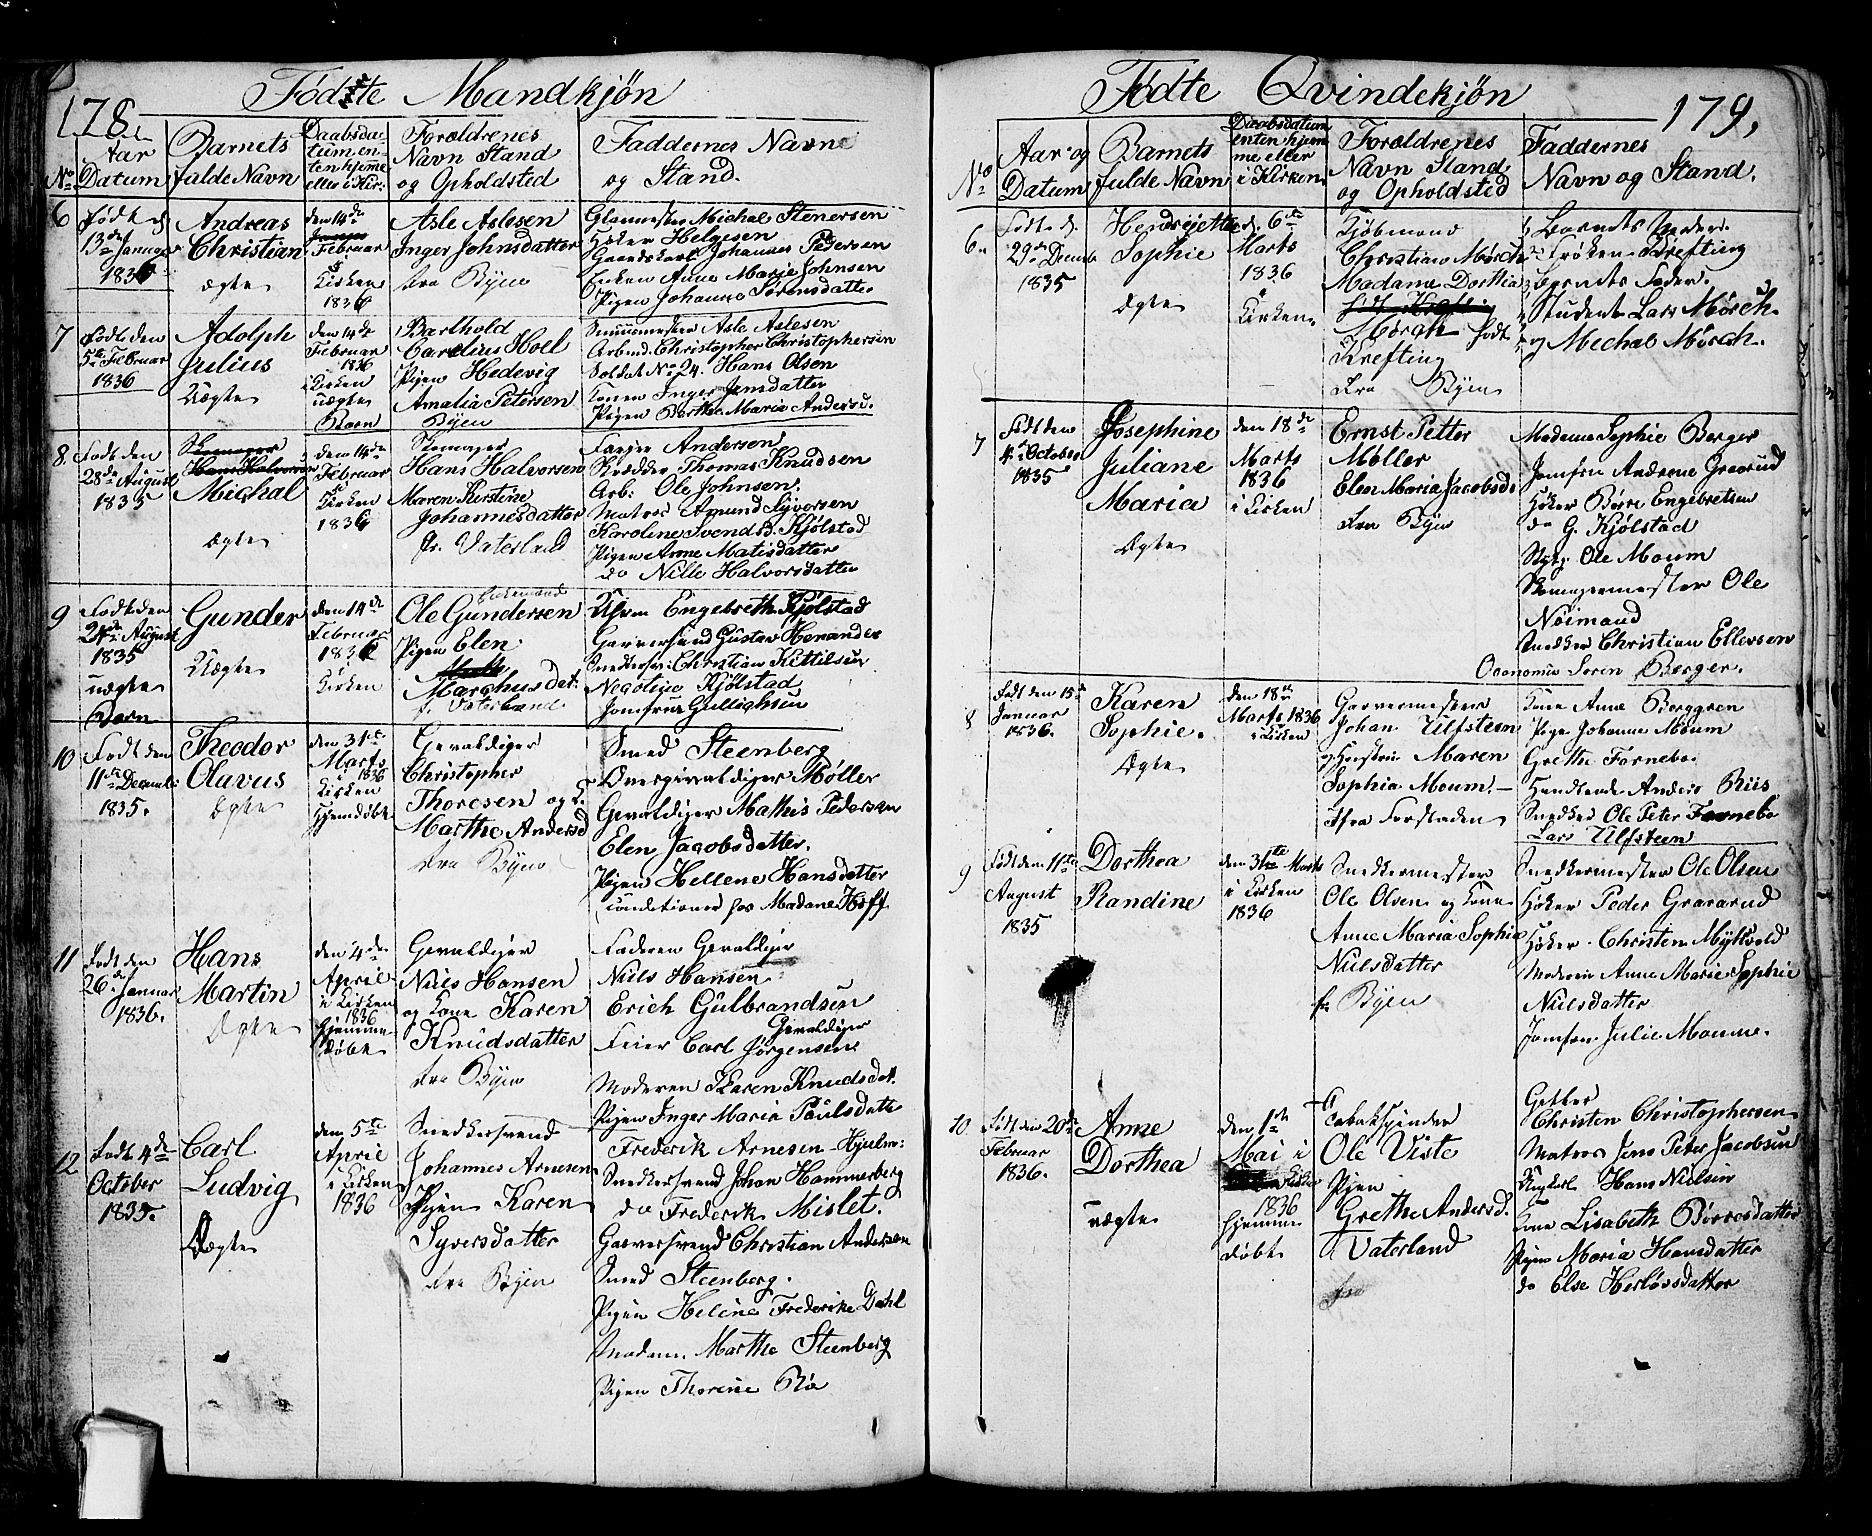 178.
Fødte Mandkjøn
No
Aar
Datum
Barnets
fulde Navn
Daabsda-
tum en-
ten hjeme
eller i Kir:
Forældrenes
Navn Stand
og Opholdsted
Faddernes Navn
og Stand.
6
Født d
13de Januar
1836
Andreas
Christian
ægte
den 14de
Februar
i
Kirken
1836
Asle Aslesen
Inger Johnsdatter
fra Byen
Glarmester Michal Stenersen
Høker Helgesen
Gaardskarl Johannes Pedersen
Enken Anne Marie Johnsen
Pigen Johanne Sørensdatter
7
Født den
5te Februar
1836
Adolph
Julius
Uægte
den 14de
Februar
1836
i Kirken
uægte
Barn
Barthold
Carelius Hoel
Pigen Hedevig
Amalia Petersen
Byen
Asle Aslesen
Arbmd. Christopher Christophersen
Soldat No 24. Hans Olsen
Konen Inger Jensdatter
Pigen Berthe Maria Andersd.
8
Født den
28de August
1835
Hans Halvorsen
Michal
ægte
den 14de
Februar
i
Kirken
1836
Hans Halvorsen
Maren Kirstine
Johannesdatter
fr. Vaterland
Andersen
Skrædder Thomas Knudsen
Arb: Ole Johnsen.
Matros Amund Syversen
Karoline Svendsd. Kjølstad
Pigen Anne Matisdatter
do Nille Halvorsdatter
9
Født den
24de August
1835
uægte
Barn
Gunder
Uægte
den 14de
Februar
1836
i
Kirken
Ole Gundersen
Pigen Elen
Marchusdat:
f. Vaterland
Engebreth Kjølstad
Garversvend Gustav Henander
Snedkersv: Christian Kittilsen
Negoline Kjølstad
Jomfrue Gullichsen
10
Født den
11te Decembr
1835.
Theodor
Olavus
Ægte
den 31te
Marts
i 1836
Kirken
hjemdøbt
Gevaldiger
Christopher
Thoresen og K.
Marthe Andersd
fra Byen
Smed Steenberg
Overgevaldiger Møller
Gevaldiger Mathis Pedersen
Elen Jacobsdatter.
Pigen Hellene Hansdatter
conditioner hos Madame Hoff
11
Født den
26de Januar
1836.
Hans
Martin
Ægte
den 4de
April
i Kirken
1836
hjemme
døbt
Gevaldiger
Niels Hansen
og Kone Karen
Knudsdatter
fra Byen
Faderen Gevaldiger
Niels Hansen
Erich Gulbrandsen
Gevaldiger
Feier Carl Jørgensen
Moderen Karen Knudsdat.
Pigen Inger Maria Paulsdatte
12
Født 4de
October
1835.
Carl
Ludvig
Uægte
den 5te
April
i Kirken
1836
Snedkersvend
Johannes Arnesen
Pigen Karen
Syversdatter
fra Byen
Frederik Arnesen Hjulm:
Snedkersvend Johan Hammerberg
do Frederik Mislet.
Garversvend Christian Andersen
Smed Steenberg.
Pigen Heline Frederike Dahl
Madam Marthe Steenberg
Pigen Thorine Bøe
179.
Fødte Qvindekjøn
No
Aar og
Datum
Barnets
fulde Navn
Daabsdatum
enten hjem-
me eller
i Kirken
Forældrenes
Navn Stand
og Opholdsted
Faddernes
Navn og Stand.
6.
Født d.
29de Decemb
1835
Hendriette
Sophie
Ægte
d. 6te
Marts
1836
i
Kirken.
Kjøbmand
Christian Mørch
Madame Dorthia
Mørch født
Krefting
fra Byen
Barnets Moder
Frøken Krefting
Barnets Fader.
Student Lars Mørch
og Mechal Mørch.
7
Født den
4de October
1835
Josephine
Juliane
Maria
Ægte
den 18de
Marts
1836
i Kirken
Ernst Petter
Møller
Elen Maria Jacobsd.
fra Byen
Madame Sophie Berger
Jomfru Andrene Gravrud
Høker Børre Engebretsen
do G. Kjølstad
Ole Moum
Ole
Neimand
Snedker Christian Ellevsen
Oeconomus Soren Berger.
8
Født den 15de
Januar
1836.
Karen
Sophie.
Ægte
den 18de
Marts 1836
i Kirken
Garvermester
Johan Ulfsteen
og Hustrue Maren
Sophia Moum.
fra Forstaden
Kone Anne Berggren
Pige Johanne Moum
Grethe Fornebo
Handlende Anders Riis
Snedker Ole Peter Fornebo
Lars Ulfsteen
9
Født den 11te
August
1835
Dorthea
Randine
den 31te Marts
i Kirken
1836
Snedkermester
Ole Olsen og Kone
Anne Maria Sophia
Nielsdatter
fr Byen
Snedkermester Ole Olsen
Høker Peder Gravrud
Høker Christen Myhvold
Moderen Anne Marie Sophie
Nielsdatter
Jomfru Julie Moume.
10.
Født den 20de
Februar
1836.
Anne
Dorthea
uægte
den 1te
Mai i
Kirken
1836
hjemme
døbt
Tabakspinder
Ole Viste
Pigen
Grethe Andersd.
Vaterland
fra
Christen Christophersen
Matros Jens Peter Jacobsen
Ungkarl Hans Nielsen
Kone Lisabeth Børresdatter
Pigen Maria Hansdatter
do Else Herløvsdatter